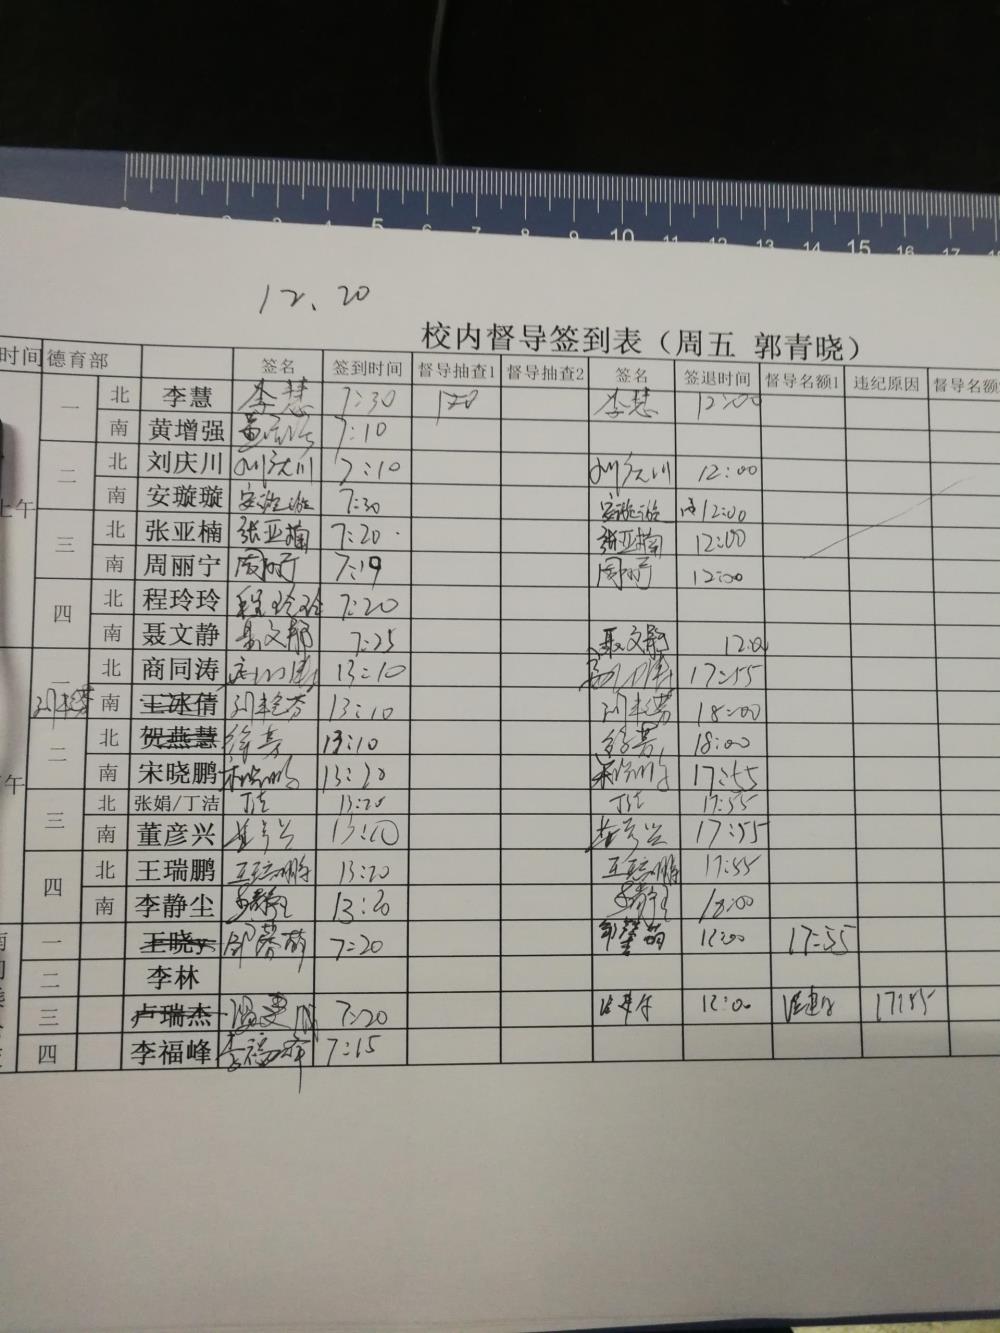 5 6 7 8 9 10 11 12 13 14 15 16 17
12.20
校内督导签到表（周五 郭青晓）
时间 德育部 签名 签到时间 督导抽查1 督导抽查2 签名 签退时间 督导名额1 违纪原因 督导名额
上午
一 北 李慧 李慧 7:30 李慧 12:00
南 黄增强 7:10
二 北 刘庆川 刘庆川 7:10 刘庆川 12:00
南 安璇璇 安璇璇 7:30 安璇璇 12:00
三 北 张亚楠 张亚楠 7:20 张亚楠 12:00
南 周丽宁 周丽宁 7:19 周丽宁 12:00
四 北 程玲玲 程玲玲 7:20
南 聂文静 聂文静 7:25 聂文静 12:00
午
一 北 商同涛 13:10 17:55
南 王冰倩 13:10 18:00
二 北 贺燕慧 13:10 18:00
南 宋晓鹏 宋晓鹏 13:20 宋晓鹏 17:55
三 北 张娟/丁洁 丁洁 13:20 丁洁 17:55
南 董彦兴 董彦兴 董彦兴 17:55
四 北 王瑞鹏 王瑞鹏 13:20 王瑞鹏 17:55
南 李静尘 李静尘 13:20 李静尘 18:00
一 王晓 7:20 12:00 17:55
二 李林
三 卢瑞杰 7:20 12:00 17:55
四 李福峰 李福峰 7:15